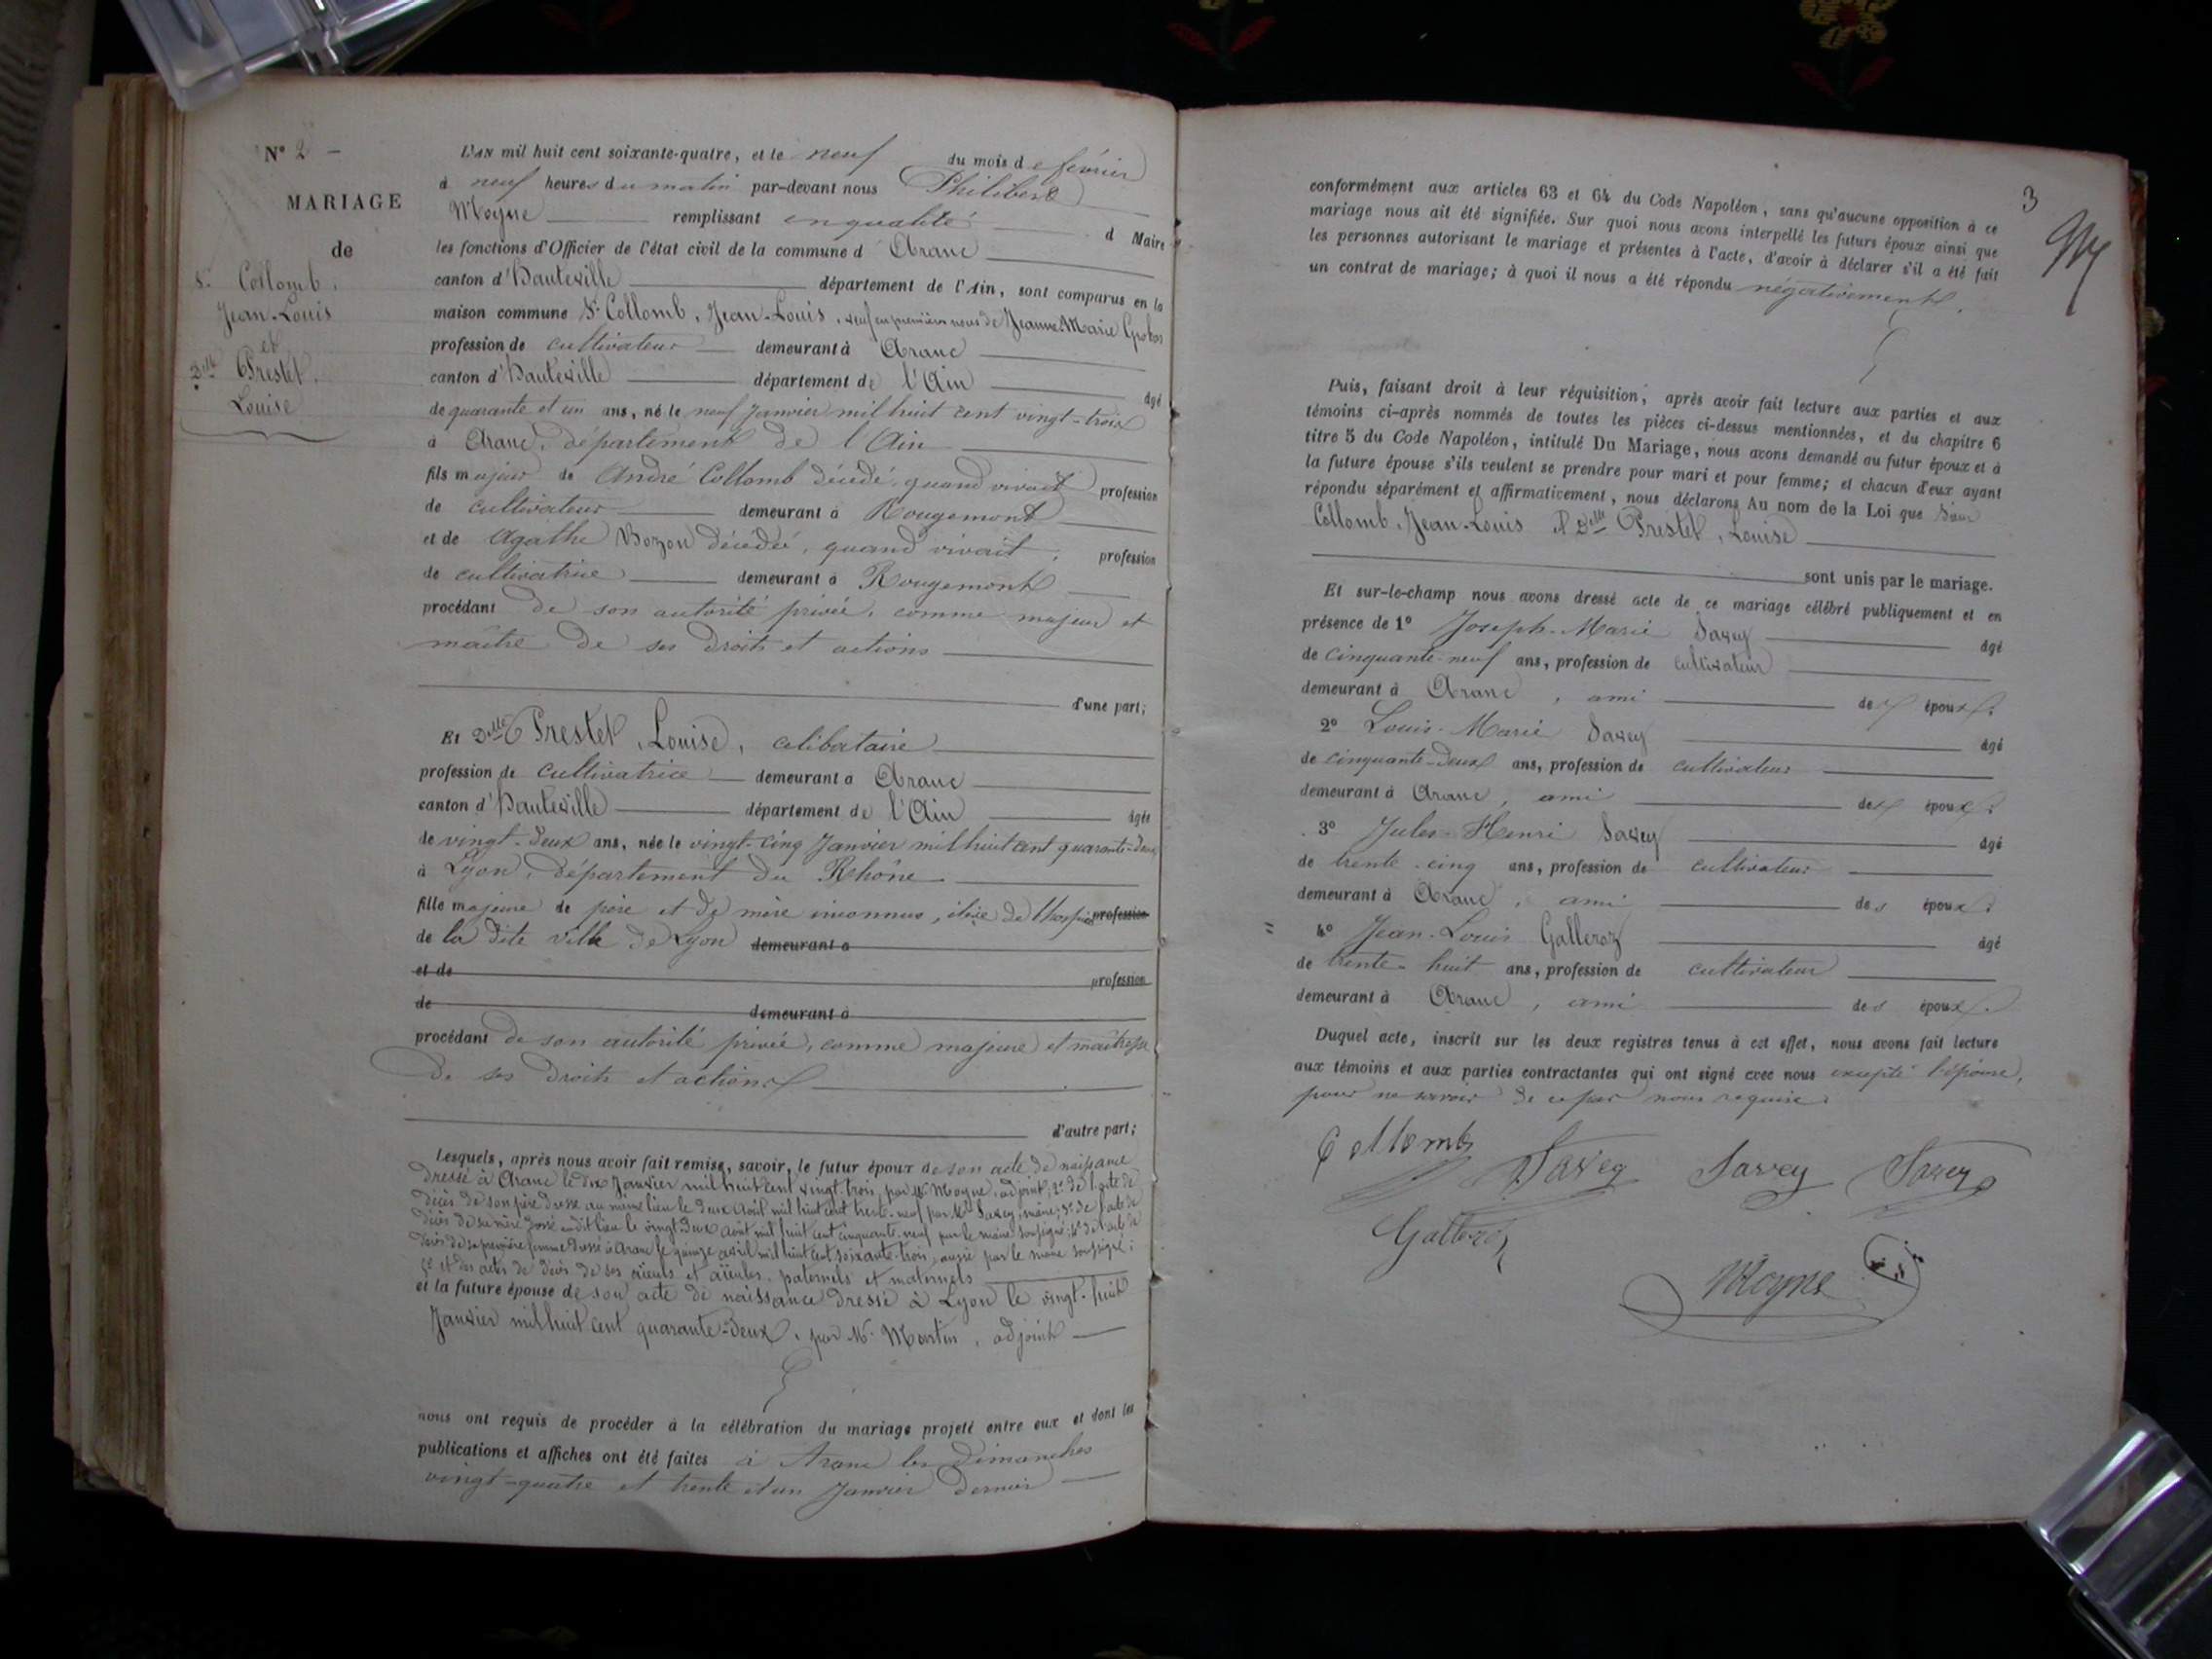 N° 2 -
MARIAGE
de
Sr. Collomb,
Jean-Louis
et
Dlle Prestel,
Louise
L'AN mil huit cent soixante-quatre, et le neuf du mois de février
à neuf heures du matin par-devant nous Philibert
Moyne remplissant en qualité d Maire
les fonctions d'Officier de l'état civil de la commune d' Aranc
canton d'Hauteville département de l'Ain, sont comparus en la
maison commune Sr. Collomb, Jean-Louis, veuf en premières noces de Jeanne-Marie
profession de cultivateur demeurant à Aranc
canton d'Hauteville département de l'Ain âgé
de quarante et un ans, né le neuf Janvier mil huit cent vingt-trois
à Aranc, département de l'Ain
fils majeur de André Collomb décédé, quand vivait profession
de cultivateur demeurant à Rougemont
et de Agathe Bozon décédée, quand vivait, profession
de cultivatrice demeurant à Rougemont
procédant de son autorité privée, comme majeur et
maître de ses droits et actions
d'une part;
Et Dlle Prestel, Louise, célibataire
profession de cultivatrice demeurant à Aranc
canton d'Hauteville département de l'Ain âgée
de vingt-deux ans, née le vingt-cinq Janvier mil huit cent quarante-deux
à Lyon, département du Rhône
fille majeure de père et de mère inconnus, élève de l'hospice profession
de la dite ville de Lyon demeurant à
et de profession
de demeurant à
procédant de son autorité privée, comme majeure et maîtresse
de ses droits et actions
d'autre part;
Lesquels, après nous avoir fait remise, savoir, le futur époux de son acte de naissance
dressé à Aranc le dix Janvier mil huit cent vingt-trois, par Mr. Moyne, adjoint; 2° de l'acte de
décès de son père dressé au même lieu le deux Août mil huit cent trente-neuf par Mr. Savey, maire; 3° de l'acte de
décès de sa mère dressé audit lieu le vingt-deux août mil huit cent cinquante-neuf par le maire soussigné; 4° de l'acte de
décès de sa première femme dressé à Aranc le quinze avril mil huit cent soixante-trois, aussi par le maire soussigné;
5° et des actes de décès de ses aïeuls et aïeules, paternels et maternels
et la future épouse de son acte de naissance dressé à Lyon le vingt-huit
Janvier mil huit cent quarante-deux, par Mr. Martin, adjoint
nous ont requis de procéder à la célébration du mariage projeté entre eux et dont les
publications et affiches ont été faites à Aranc les dimanches
vingt-quatre et trente et un Janvier dernier
3
conformément aux articles 63 et 64 du Code Napoléon, sans qu'aucune opposition à ce
mariage nous ait été signifiée. Sur quoi nous avons interpellé les futurs époux ainsi que
les personnes autorisant le mariage et présentes à l'acte, d'avoir à déclarer s'il a été fait
un contrat de mariage; à quoi il nous a été répondu négativement.
Puis, faisant droit à leur réquisition, après avoir fait lecture aux parties et aux
témoins ci-après nommés de toutes les pièces ci-dessus mentionnées, et du chapitre 6
titre 5 du Code Napoléon, intitulé Du Mariage, nous avons demandé au futur époux et à
la future épouse s'ils veulent se prendre pour mari et pour femme; et chacun d'eux ayant
répondu séparément et affirmativement, nous déclarons Au nom de la Loi que Sieur
Collomb, Jean-Louis et Dlle Prestel, Louise
sont unis par le mariage.
Et sur-le-champ nous avons dressé acte de ce mariage célébré publiquement et en
présence de 1° Joseph-Marie Savey âgé
de cinquante-neuf ans, profession de cultivateur
demeurant à Aranc, ami des époux.
2° Louis-Marie Savey âgé
de cinquante-deux ans, profession de cultivateur
demeurant à Aranc, ami des époux.
3° Jules-Henri Savey âgé
de trente-cinq ans, profession de cultivateur
demeurant à Aranc, ami des époux.
4° Jean-Louis Galleroz âgé
de trente-huit ans, profession de cultivateur
demeurant à Aranc, ami des époux.
Duquel acte, inscrit sur les deux registres tenus à cet effet, nous avons fait lecture
aux témoins et aux parties contractantes qui ont signé avec nous excepté l'épouse,
pour ne savoir de ce par nous requise.
Collomb Savey Savey Savey
Galleroz
Moyne